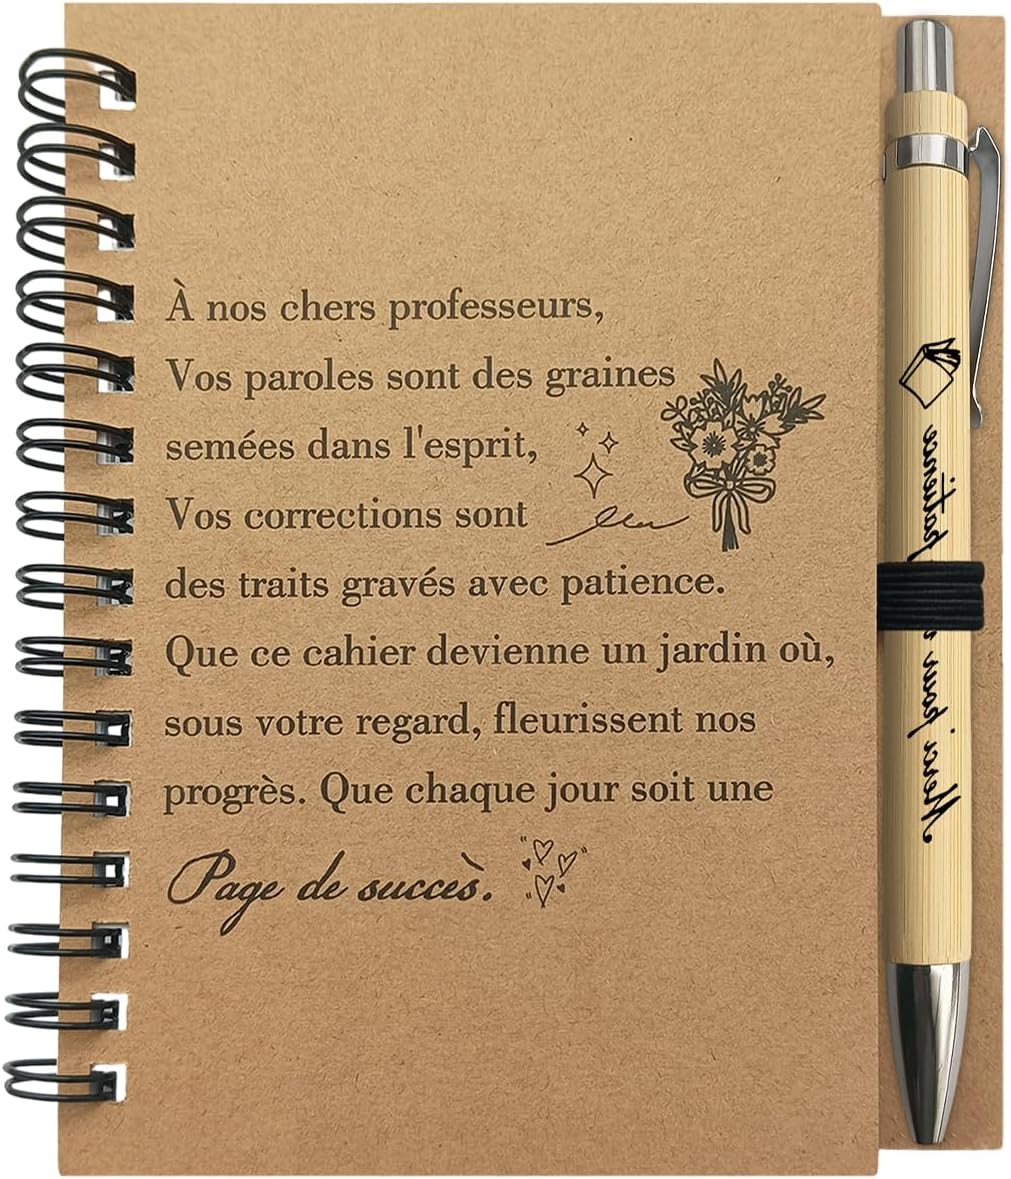 À nos chers professeurs,
Vos paroles sont des graines
semées dans l'esprit,
Vos corrections sont
des traits gravés avec patience.
Que ce cahier devienne un jardin où,
sous votre regard, fleurissent nos
progrès. Que chaque jour soit une
Page de succès.
Merci pour patience